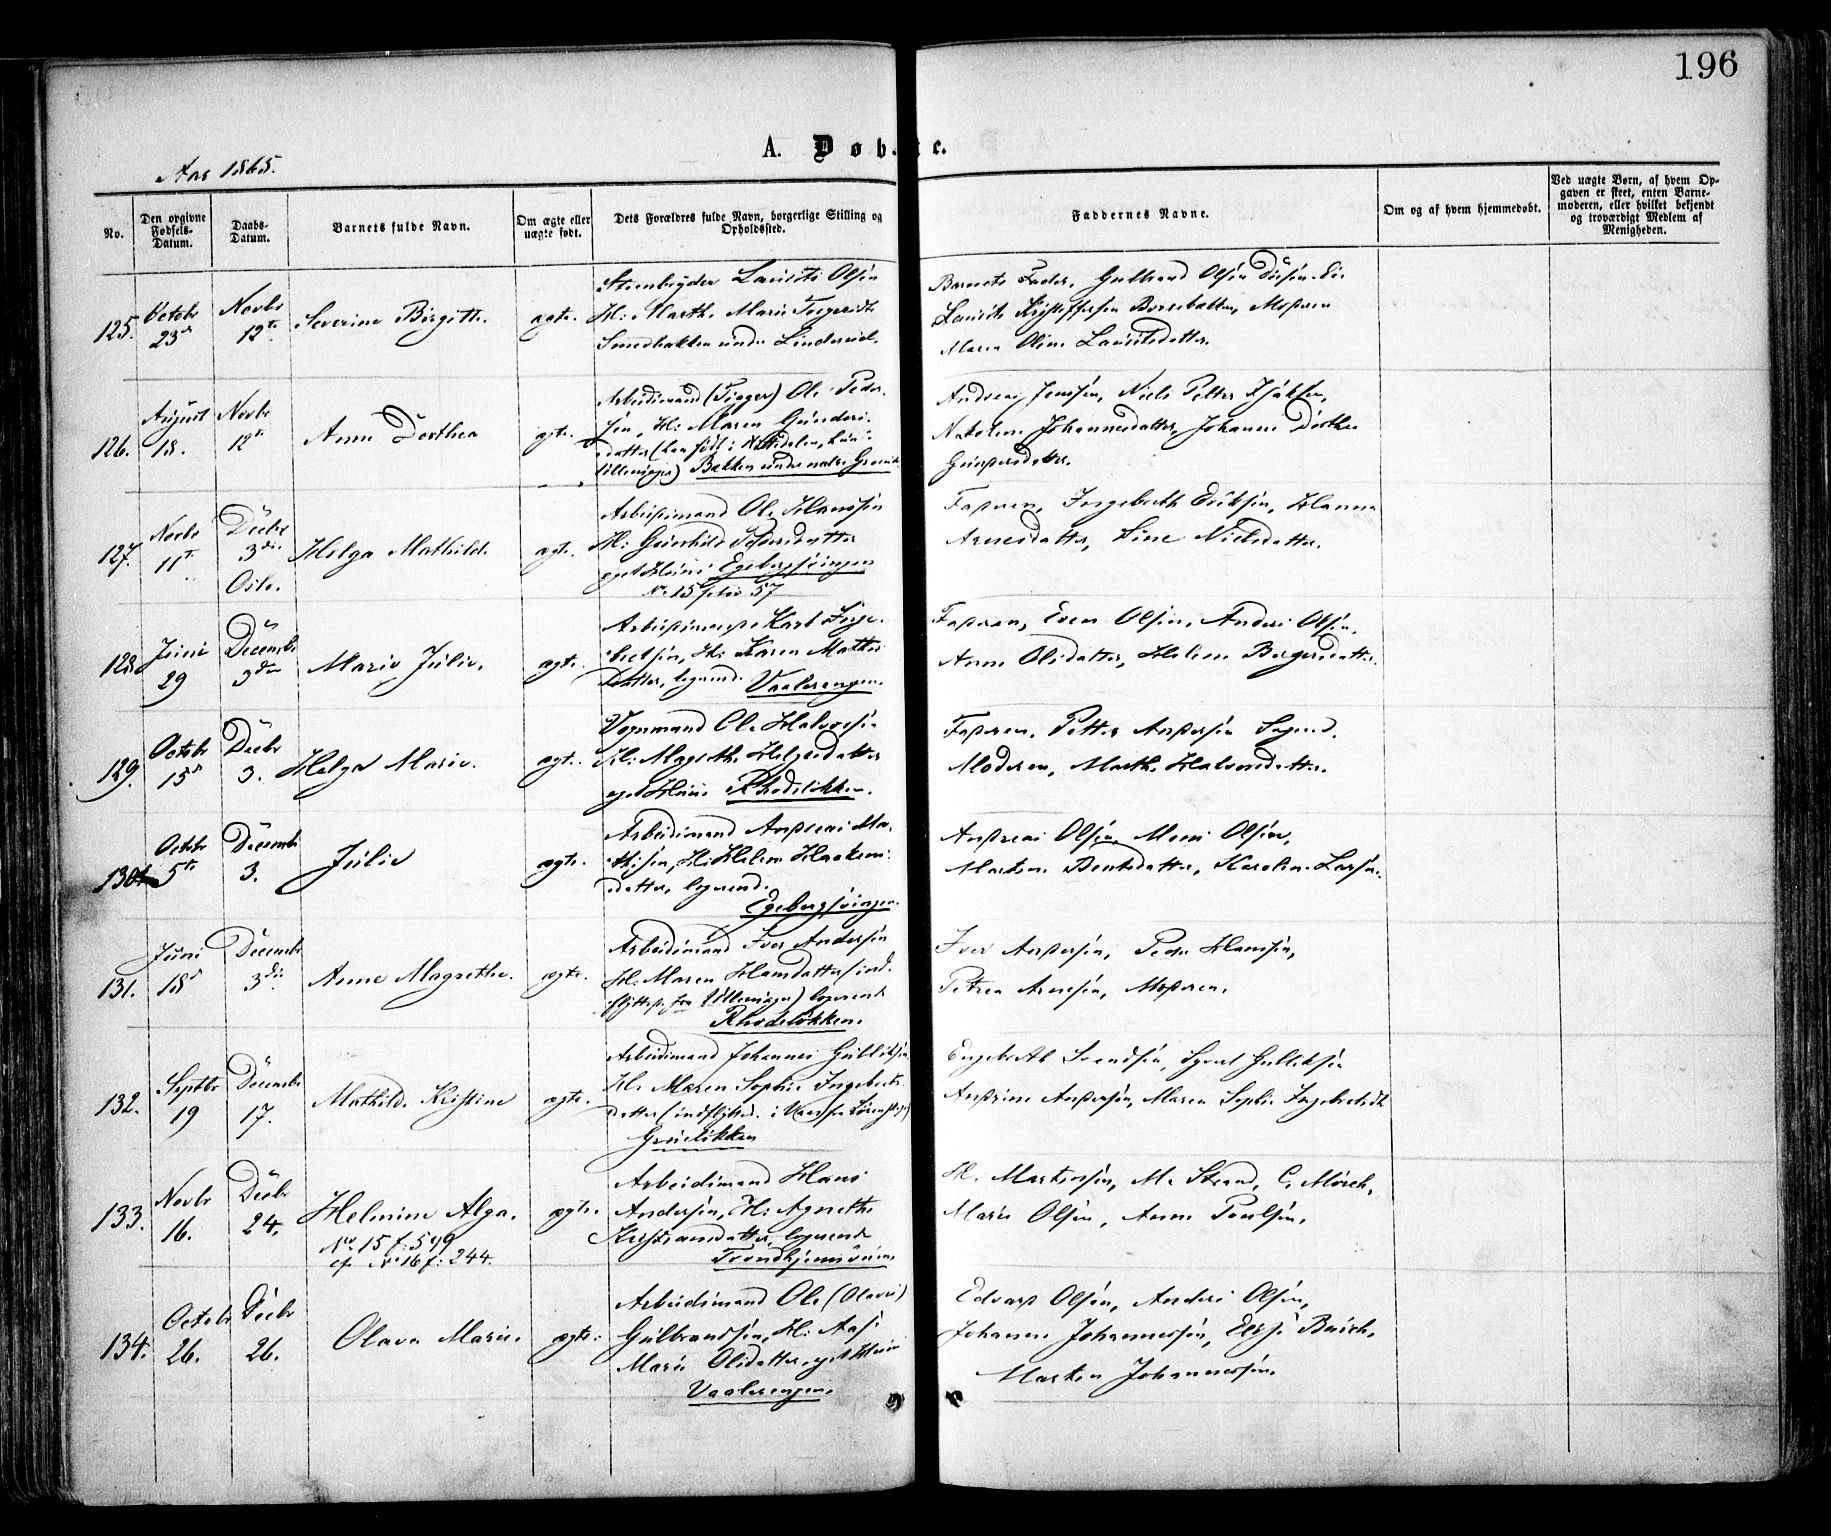 196
A. Døb e.
Aar 1865.
No.
Den opgivne Fødsels-Datum.
Daabs-Datum.
Barnets fulde Navn.
Om ægte eller uægte født.
Dets Forældres fulde Navn, borgerlige Stilling og Opholdssted.
Faddernes Navne.
Om og af hvem hjemmedøbt.
Ved uægte Børn, af hvem Opgaven er skeet, enten Barnemoderen, eller hvilket bekjendt og troværdigt Medlem af Menigheden.
125. Octobr 23de Novbr 12te Severine Birgitte. ægte.
Lauritz Olsen
H: Marthe Marie
Smedbakken under Linderud.
Barnets Fader, Gulbrand Olsen
Lauritz Kristoffersen Moderen
Maren Oline Lauritsdatter.
126. August 18. Novbr 12te Anne Dorthea ægte.
Arbeidsmand (Tigger) Ole Peder-
sen, H: Maren Gunders-
datter
Bakken under nedre Grorud
Andreas Jensen, Niels Petter
Johannesdatter, Johanne Dorthea
127. Novbr 11te Decbr 3die Oslo. Helga Mathilde ægte.
Arbeidsmand Ole Hanssen
H: Gunhild Pedersdatter
eget Huus Egebergsvingen
No 15 folio 57
Faderen, Ingebreth Eriksen, Hanna
Arnesdatter, Line Nielsdatter.
128. Juni 29 Decembr 3die Marie Julie. ægte.
Arbeidsmand Karl Inge-
bretsen, H: Karen Mathis
Datter, logerend. Vaalerengen.
Faderen, Even Olsen, Anders Olsen,
Anne Olsdatter, Helene Borgersdatter.
129. Octobr 15de Decbr 3. Helga Marie. ægte.
Vognmand Ole Halvorsen
H: Magrethe Helgesdatter
eget Huus Rhodeløkken.
Faderen, Petter Andersen
Moderen, Marthe Halvorsdatter.
130 Octobr 5te Decembr 3. Julie ægte.
Arbeidsmand Andreas Ma-
thisen, H: Helene Haakens-
datter, logerend.
Egebergsvingen.
Andreas Olsen, Olsen,
Marten Berntsdatter, Karoline Larsen.
131. Juni 18de Decembr 3die Anne Magrethe. ægte.
Arbeidsmand Iver Andersen
H: Maren Hansdatter (ind-
flyttede fra Ullensager) logerende
Rhodeløkken.
Iver Andersen, Peder Hansen,
Petrea Arnesen, Moderen.
132. Septbr 19 Decembr 17. Mathilde Kristine ægte.
Arbeidsmand Johannes Gulliksen
H: Maren Sophie Ingebrets-
datter
Grüeløkken
Engebreth Svendsen, Gulliksen
Andrine Andersen, Maren Sophie Ingebretsdt
133. Novbr 16. Decbr 24. Helmine Alga. ægte.
No 15 f: 549
cfr No 16 f: 244.
Arbeidsmand Hans
Andersen, H: Agnethe
Kristiansdatter, logerende
Trondhjemsveien
H. Martinsen, M. Strand, C. Mørch,
Marie Olsen, Anne Paulsen.
134. Octobr 26. Decbr 26. Olava Marie. ægte.
Arbeidsmand Ole (Olaves)
Gulbrandsen, H: Aase
Marie Olsdatter, eget Huus
Vaalerengen.
Edvard Olsen, Anders Olsen,
Johanne Johannessen, Busch,
Marten Johannessen.